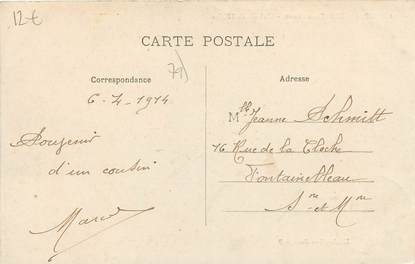 12 €
CARTE POSTALE
79)
Correspondance
Adresse
6-4-1914
Mlle Jeanne Schmitt
Souvenir
16 Rue de la Cloche
d'un cousin
Fontainebleau
Marcel
S. ne et M. ne